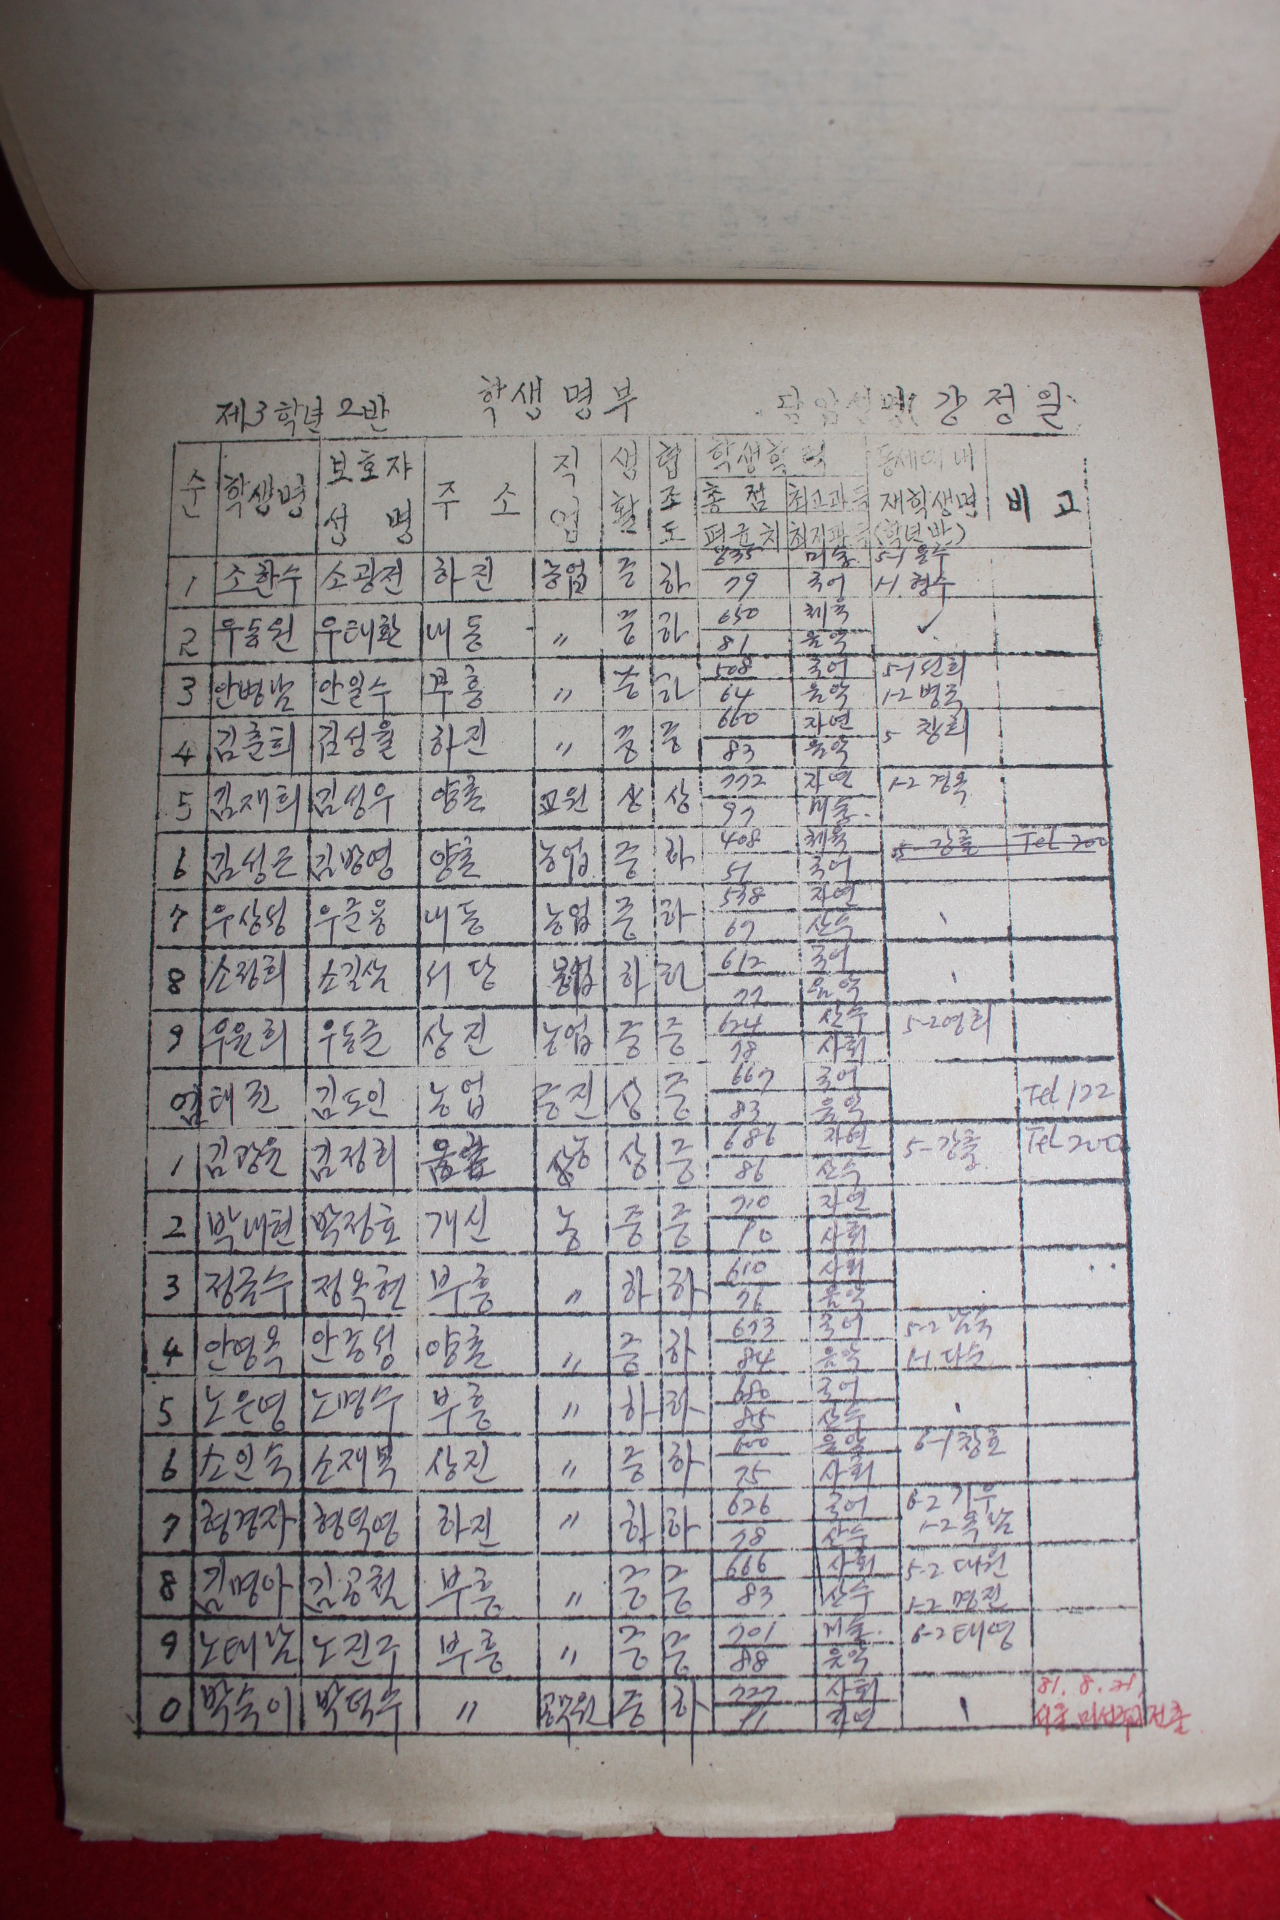 제3학년 2반 학생명부 담임성명( 강정일
순 학생명 보호자성명 주소 직업 생활 협조도 학생학력 동세대내 재학생명 (학년반) 비고
총점 최고과목
평균치 최저과목
1 소환수 소광전 하진 농업 중 하 635 미술 5-1 을수
79 국어 1-1 형수
2 우승원 우태환 내동 〃 중 하 650 체육
81 음악
3 안병남 안일수 부흥 〃 중 하 508 국어 5-1 선희
64 음악 1-2 병국
4 김춘희 김성율 하진 〃 중 중 660 자연 5 창희
83 음악
5 김재희 김성우 양촌 교원 상 상 772 자연 1-2 경옥
97 미술
6 김성근 김방영 양촌 농업 중 하 408 체육 5- 강촌 Tel 200
51 국어
7 우상성 우준웅 내동 농업 중 하 538 자연
67 산수
8 소정희 소길삼 서당 농업 하 하 612 국어
77 음악
9 우윤희 우동준 상진 농업 중 중 624 산수 5-2 영희
78 사회
태진 김도인 농업 중진 상 중 667 국어 Tel 122
83 음악
1 김광윤 김정희 상 중 686 자연 5- 강춘 Tel 200
86 산수
2 박내현 박정호 개신 농 중 중 710 자연
사회
3 정금수 정옥현 부흥 〃 하 하 610 사회
76 음악
4 안영옥 안종성 양촌 〃 중 하 673 국어 5-2 남숙
84 음악 1-1 다수
5 노은영 노명수 부흥 〃 하 하 680 국어
85 산수
6 소인숙 소재복 상진 〃 중 하 600 음악 6-1 창호
75 사회
7 형경자 형덕영 하진 〃 하 하 626 국어 6-2 기우
78 산수 1-2 옥남
8 김명아 김공철 부흥 〃 중 중 666 사회 5-2 대원
83 산수 1-2 명진
9 노태남 노진주 부흥 〃 중 중 701 미술 6-2 태영
88 음악
0 박숙이 박덕수 〃 공무원 중 하 727 사회 81. 8. 21.
91 자연 서울 미성국 전출